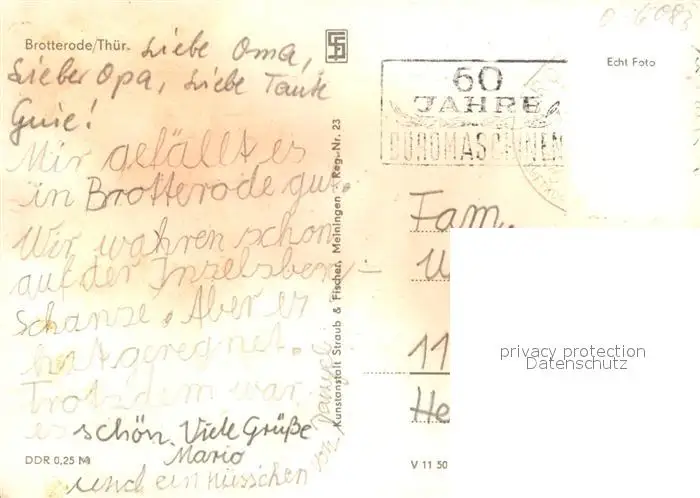 Brotterode/Thür.
Liebe Oma,
Lieber Opa, Liebe Tante
Guie!
Mir gefällt es
in Brotterode gut.
Wir wahren schon
auf der Inzelsberg-
Schanze. Aber es
hat geregnet.
Trotzdem war
es schön. Viele Grüße
Mario
und ein nüsschen
von
DDR 0,25 M
Kunstanstalt Straub & Fischer, Meiningen Reg-Nr. 23
60
JAHRE
BÜROMASCHINEN
Echt Foto
Fam.
11
He
V 11 50
privacy protection
Datenschutz